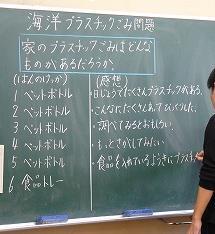 海洋プラスチックごみ問題
家のプラスチックごみはどんな
ものがあるだろうか。
(はんのけっか)
1 ペットボトル
2 ペットボトル
3 ペットボトル
4 ペットボトル
5 ペットボトル
6 食品トレー
(感想)
・目じょうでたくさんプラスチックがある。
・こんなにたくさんあってびっくりした。
・調べてみるとおもしろい。
・もっとさがしてみたい。
・食品を入れているようきにプラスチッ